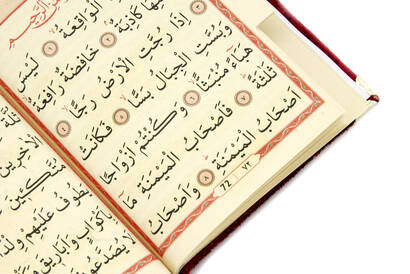 الرَّحِيمِ
الْوَاقِعَةُ ١ لَيْسَ
كَاذِبَةٌ ٢ خَافِضَةٌ رَافِعَةٌ
٣ اِذَا رُجَّتِ الْاَرْضُ رَجًّا ٤
وَبُسَّتِ الْجِبَالُ بَسًّا ٥ فَكَانَتْ
هَبَاءً مُنْبَثًّا ٦ وَكُنْتُمْ اَزْوَاجًا
ثَلٰثَةً ٧ فَاَصْحَابُ الْمَيْمَنَةِ مَا
اَصْحَابُ الْمَيْمَنَةِ ٨ وَاَصْحَابُ
72 ٧٢
ثُلَّةٌ
الْاٰخِرِينَ
مُتَّكِئِينَ
يَطُوفُ عَلَيْهِمْ
بِاَكْوَابٍ وَاَبَارِيقَ